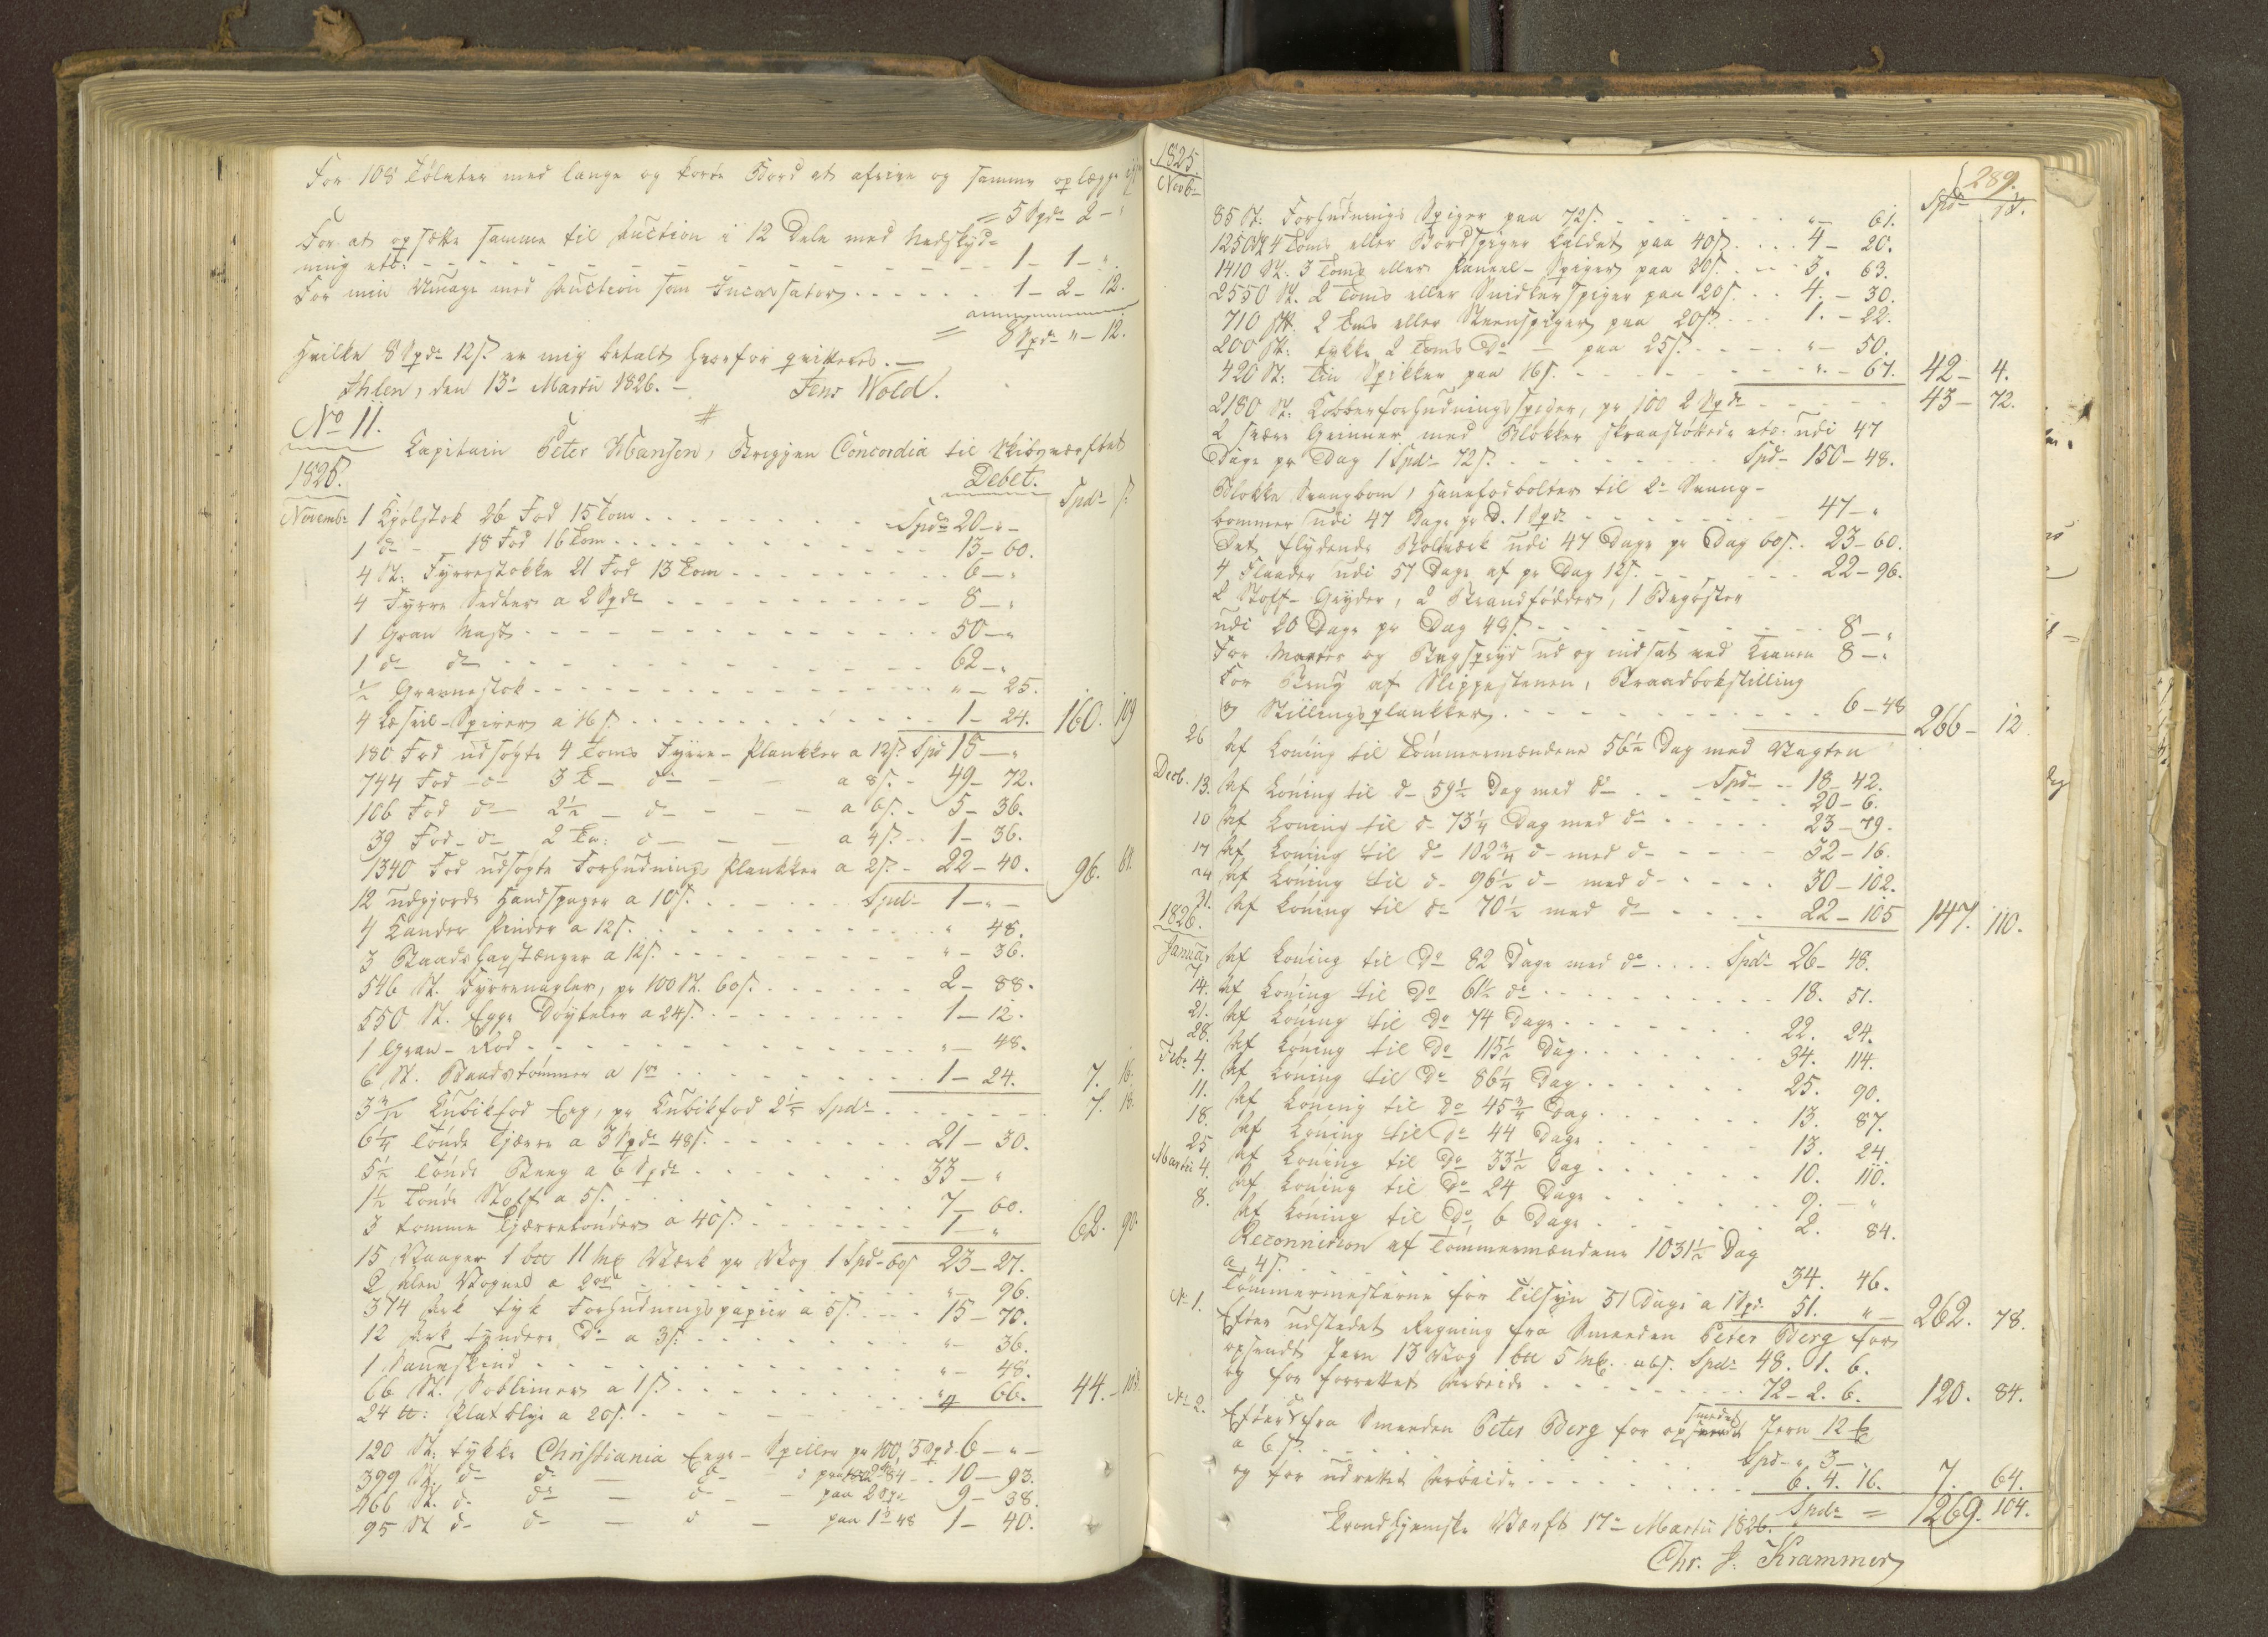 For 108 Tölvter med lange og korte Bord at afrive og samme oplægge
= 5 Spd 2 - "
For at opsætte samme til Auction i 12 Dele med Nedskyd=
ning etc: - - - 1 - 1 - "
For min Umage med Auction som Incassator - - - 1 - 2 - 12.
= 8 Spd " - 12.
Hvilke 8 Spd 12 s. er mig betalt hvorfor qvitteres. -
Ihlen, den 13 Martii 1826. - Jens Wold.
No 11.
Capitain Peter Hansen, Briggen Concordia til Skibsværftet
1825. Debet. Spd s.
Novemb: 1 Kjölstok 26 Fod 15 Tom - - - Spd 20 - " -
1 do - 18 Fod 16 Tom - - - 13 - 60.
4 St: Fyrrestokke 21 Fod 13 Tom - - - 6 - "
4 Fyrre a 2 Spd - - - 8 - "
1 Gran Mast - - - 50 - "
1 do do - - - 62 - "
1/2 Grannestok - - - " - 25.
4 Læseil-Spirer a 16 s. - - - 1 - 24. 160. 109
180 Fod udsögte 4 Toms Fyrre-Plankker a 12 s. Spd 18 - "
744 Fod do 3 T - do - - a 8 s. - 49 - 72.
106 Fod do 2 1/2 - do - - a 6 s. - 5 - 36.
39 Fod do 2 To: do - - a 4 s. - 1 - 36.
1340 Fod udsögte Forhudnings Plankker a 2 s. - 22 - 40. 96. 61.
12 udgjorde Handspager a 10 s. - - - Spd 1 - " -
4 Kander Pinder a 12 s. - - - " 48.
3 Baadshagstænger a 12 s. - - - " - 36.
546 St. Fyrrenagler, pr 100 St. 60 s. - - - 2 - 88.
550 St. Egge a 24 s. - - - 1 - 12.
1 Gran-Rod - - - " - 48.
6 St. Baadstömmer a - - - 1 - 24. 7. 16.
3 Kubikfod Eeg, pr Kubikfod Spd - - - 7. 18.
6 1/4 Tönde Tjære a 3 Spd 48 s. - - - 21 - 30.
5 1/2 Tönde Beeg a 6 Spd - - - 33 - "
1 1/2 Tönde Stoff a 5 s. - - - 7 - 60.
3 tomme Tjæretönder a 40 s. - - - 1 - " 62. 90.
15 Vaager 1 11 Værk pr Vog 1 Spd 60 s 23 - 27.
2 Alen a - - - " - 96.
374 Ark tyk Forhudningspapir a 5 s. - - - 15 - 70.
12 Ark tyndere Do a 3 s. - - - " - 36.
1 Saueskind - - - " - 48.
66 St. a 1 s. - - - " 66. 44. - 103
24 tt: Platblye a 20 s. - - - 4
120 St: tykke Christiania Eege-Spiller pr 100, 5 Spd. 6 - " -
399 St. do do - do - 10 - 93.
466 St. do do - do - paa 2 Spd 9 - 38.
95 St do do - do - paa 1 48 1 - 40.
1825.
Novb: 289.
Spd s.
85 St: Forhudnings Spiger paa 72 s. - - - " - 61.
1250 St 4 Toms eller Bordspiger kaldet paa 40 s. - - - 4 - 20.
1410 St. 3 Toms eller Paneel-Spiger paa 30 s. - - - 3. 63.
2550 St. 2 Toms eller Snidkerspiger paa 20 s. - - - 4. - 30.
710 St. 2 Toms eller Steenspiger paa 20 s. - - - 1. - 22.
200 St: tykke 2 Toms Do - paa 25 s. - - - " - 50.
420 St: Tin Spikker paa 16 s. - - - " - 67. 42 - 4.
2180 St. Kobberforhudningsspiger, pr 100 2 Spd - - - 43 - 72.
2 svære med Blokker etc. udi 47
Dage pr Dag 1 Spd 72 s. - - - Spd 150 - 48.
Blokke Svangbom, Hanefodbolter til 2 Svang-
bommer udi 47 Dage pr D. 1 Spd - - - 47 - "
Det flydende Bolværk udi 47 Dage pr Dag 60 s. - 23 - 60.
4 Flaader udi 57 Dage af pr Dag 12 s. - - - 22 - 96.
2 Stoff-Gryder, 2 Strandfödder, 1 Begöster
udi 20 Dage pr Dag 48 s. - - - 8 - "
For Master og Bugspryd ud og indsat ved Kranen 8 - "
For Brug af Slippestenen, Braadbokstilling
og Stillingsplankker - - - 6 - 48 266 - 12.
26 Af Koning til Tömmermændene 56 1/2 Dag med Vagten
Spd - - 18 - 42.
Decb. 13. Af Koning til do 59 1/2 Dag med do - - - 20 - 6.
10 Af Koning til do 73 1/4 Dag med do - - - 23 - 79.
17 Af Koning til do 102 3/4 do med do - - - 32 - 16.
24 Af Koning til do 96 1/2 do med do - - - 30 - 102.
31. Af Koning til do 70 1/2 med do - - - 22 - 105 147. 110.
1826.
Januar 7. Af Koning til Do 82 Dage med do - - - Spd 26 - 48.
14. Af Koning til Do 61 1/2 do - - - 18. 51.
21. Af Koning til Do 74 Dage - - - 22. 24.
28. Af Koning til Do 115 1/2 Dag - - - 34. 114.
Feb: 4. Af Koning til Do 86 1/4 Dag - - - 25. 90.
11. Af Koning til Do 45 3/4 Dag - - - 13. 87.
18. Af Koning til Do 44 Dage - - - 13. 24.
25 Af Koning til Do 33 1/2 Dag - - - 10. 110.
Martii 4. Af Koning til Do 24 Dage - - - 9. - "
8. Af Koning til Do 6 Dage - - - 2. 84.
Reconnition af Tömmermændene 1031 1/2 Dag
a 4 s. - - - 34. 46.
Tömmermesterne for Tilsyn 51 Dage a 1 Spd. 51. " - 262. 78.
No 1. Efter udstedet Regning fra Smeeden Peter Berg for
opsendt Jern 13 Vog 1 5 a 6 s. Spd 48. 1. 6.
og for forrettet Arbeide - - - 72 - 2. 6. 120. 84.
No 2. Efter do fra Smeeden Peter Berg for opsmedet Jern 12
a 6 s. - - - Spd " 3 - "
og for udrettet Arbeide - - - 6. 4. 16. 7. 64.
Spd = 1269. 104.
Trondhjemske Værft 17 Martii 1826.
Chr. J. Krammer